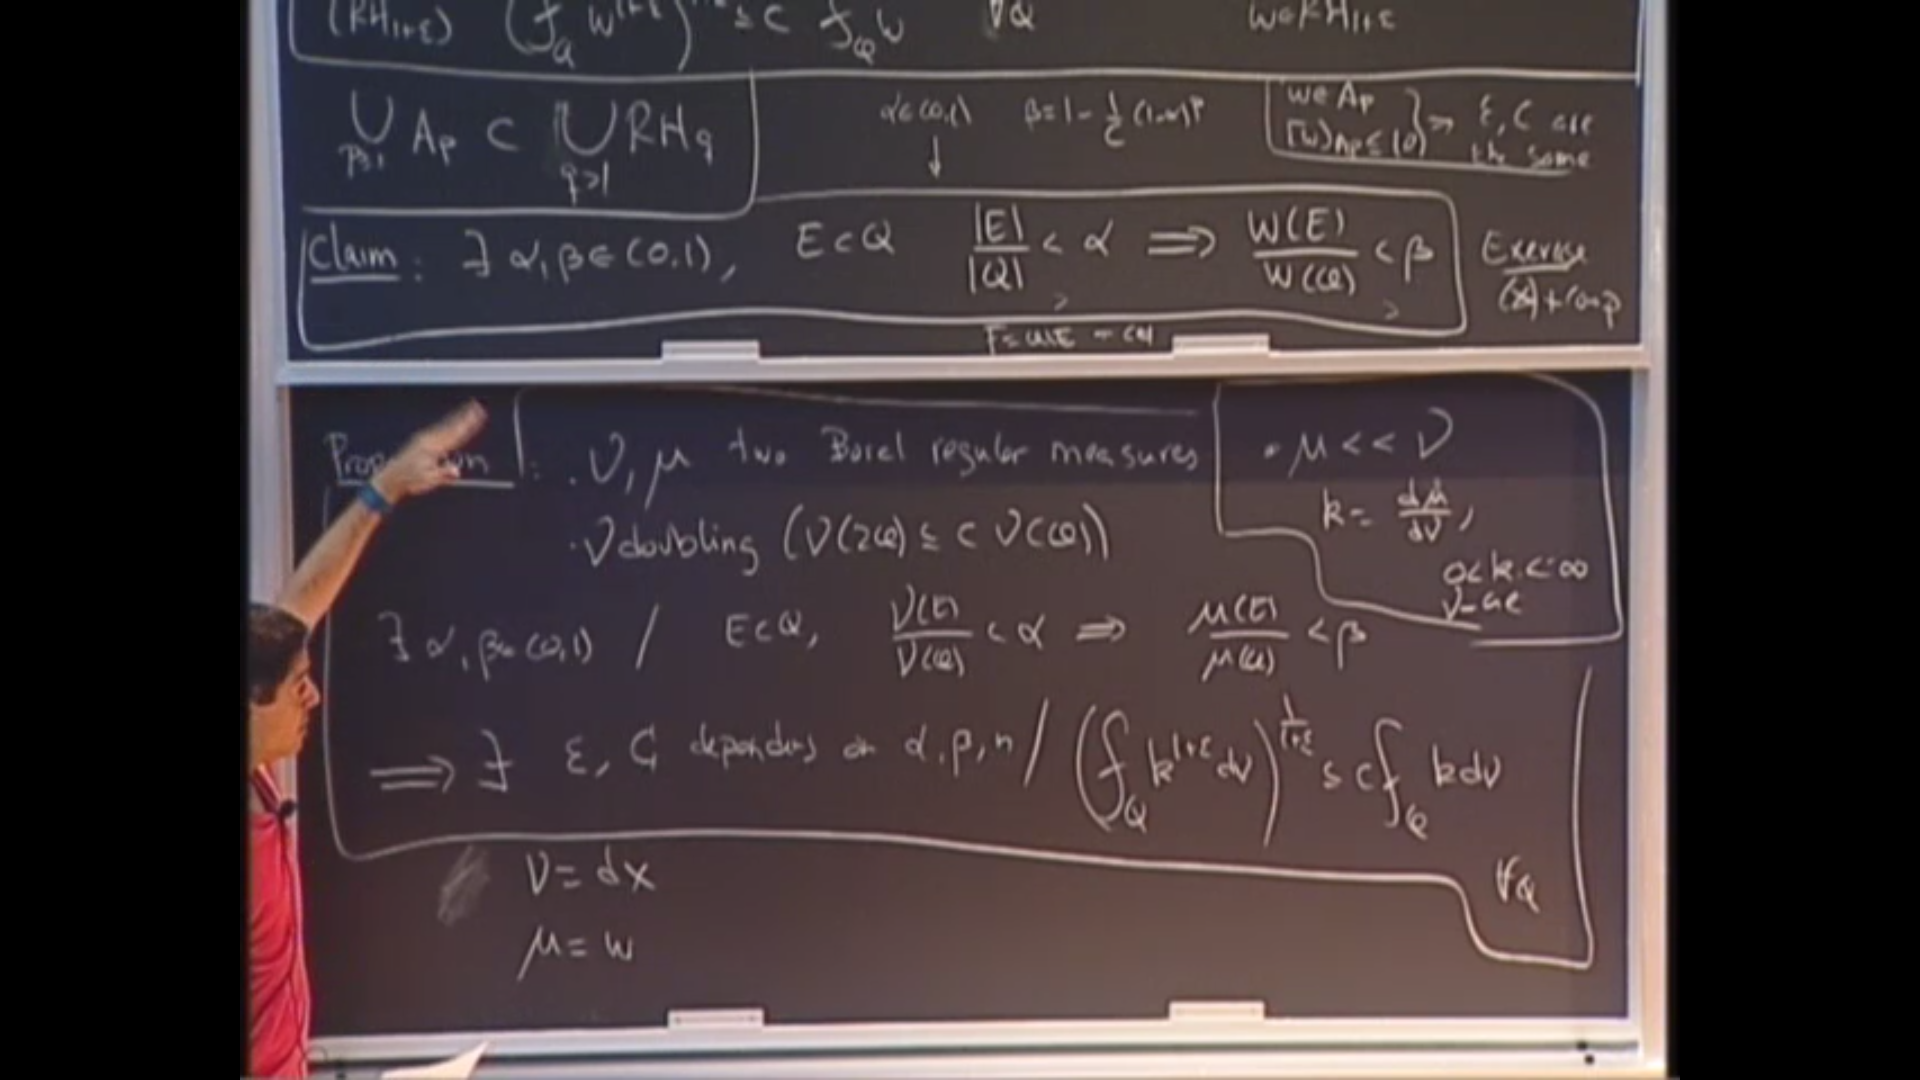 (RH₁₊ε) (⨍_Q w^{1+ε})^{1/(1+ε)} ≤ C ⨍_Q w ∀Q w∈RH₁₊ε
⋃_{p≥1} A_p ⊂ ⋃_{q>1} RH_q
α∈(0,1) β=1-1/C (1-α)^p
↓
w∈A_p
[w]_{A_p} ≤ C_0 } ⇒ ε, C are the same
Claim: ∃ α, β∈(0,1), E⊂Q |E|/|Q| < α ⟹ w(E)/w(Q) < β
Exercise
(*)+comp
Proposition 1: . ν, μ two Borel regular measures
. ν doubling (ν(2Q) ≤ C ν(Q))
• μ << ν
k = dμ/dν,
0<k<∞
ν-ae
∃ α, β∈(0,1) / E⊂Q, ν(E)/ν(Q) < α ⇒ μ(E)/μ(Q) < β
⟹ ∃ ε, C depending on α, β, n / (⨍_Q k^{1+ε} dν)^{1/(1+ε)} ≤ C ⨍_Q k dν
∀Q
ν = dx
μ = w